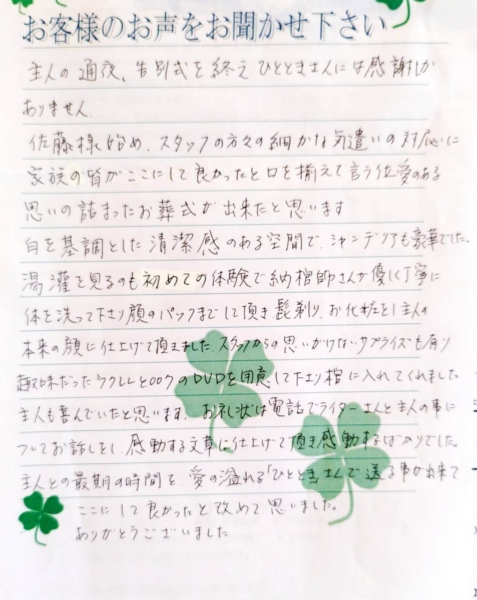 お客様のお声をお聞かせ下さい
主人の通夜、告別式を終えひとときさんには感謝しか
ありません
佐藤様始め、スタッフの方々の細かな気遣いの対応に
家族の皆がここにして良かったと口を揃えて言う位愛のある
思いの詰まったお葬式が出来たと思います
白を基調とした清潔感のある空間で、シャンデリアも豪華でした。
湯灌を見るのも初めての体験で納棺師さんが優しく丁寧に
体を洗って下さり顔のパックまでして頂き髭剃り、お化粧をし主人の
本来の顔に仕上げて頂きました、スタッフからの思いがけないサプライズも有り
趣味だったウクレレと のDVDを用意して下さり棺に入れてくれました
主人も喜んでいたと思います。お礼状は電話でライターさんと主人の事に
ついてお話しをし、感動する文章に仕上げて頂き感動するばかりでした。
主人との最期の時間を、愛の溢れる「ひととき」さんで送る事が出来て
ここにして良かったと改めて思いました。
ありがとうございました